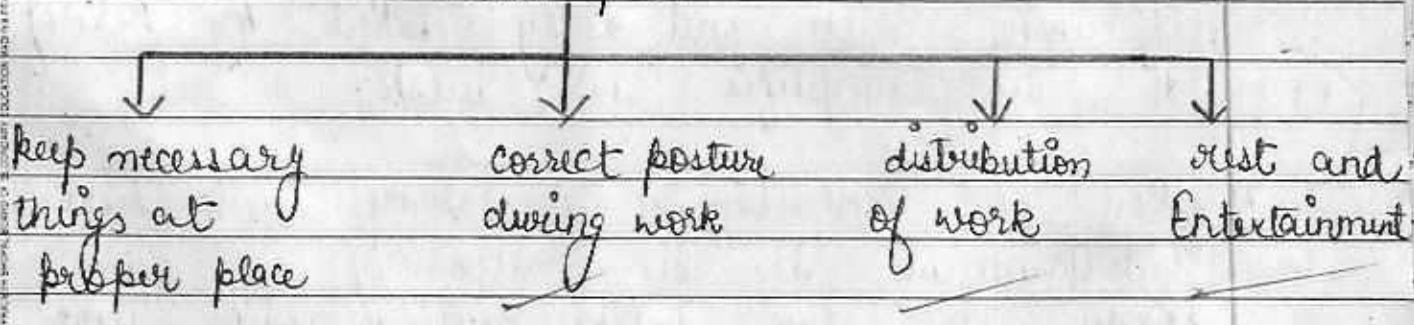 keep necessary
things at
proper place
correct posture
during work
distribution
of work
rest and
Entertainment